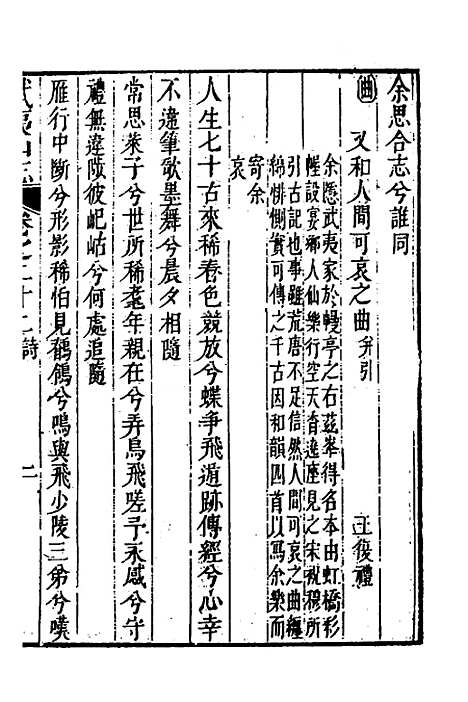 余思合志兮誰同
曲
又和人間可哀之曲 并引 王復禮
余隱武夷家於幔亭之右茲峯得名本由虹橋彩
幄設宴鄉人仙樂行空天香達座見之宋祝穆所
引古記也事雖荒唐不足信然人間可哀之曲纏
綿悱惻實可傳之千古因和韻四首以寫余樂而
寄余
哀
人生七十古來稀春色競放兮蝶爭飛遁跡傳經兮心幸
不違筆歌墨舞兮晨夕相隨
常思萊子兮世所稀耄年親在兮弄鳥飛嗟予永感兮守
禮無違陟彼屺岵兮何處追隨
雁行中斷兮形影稀怕見鶺鴒兮鳴與飛少陵三弟兮嘆
武夷山志 卷之二十二 詩 二